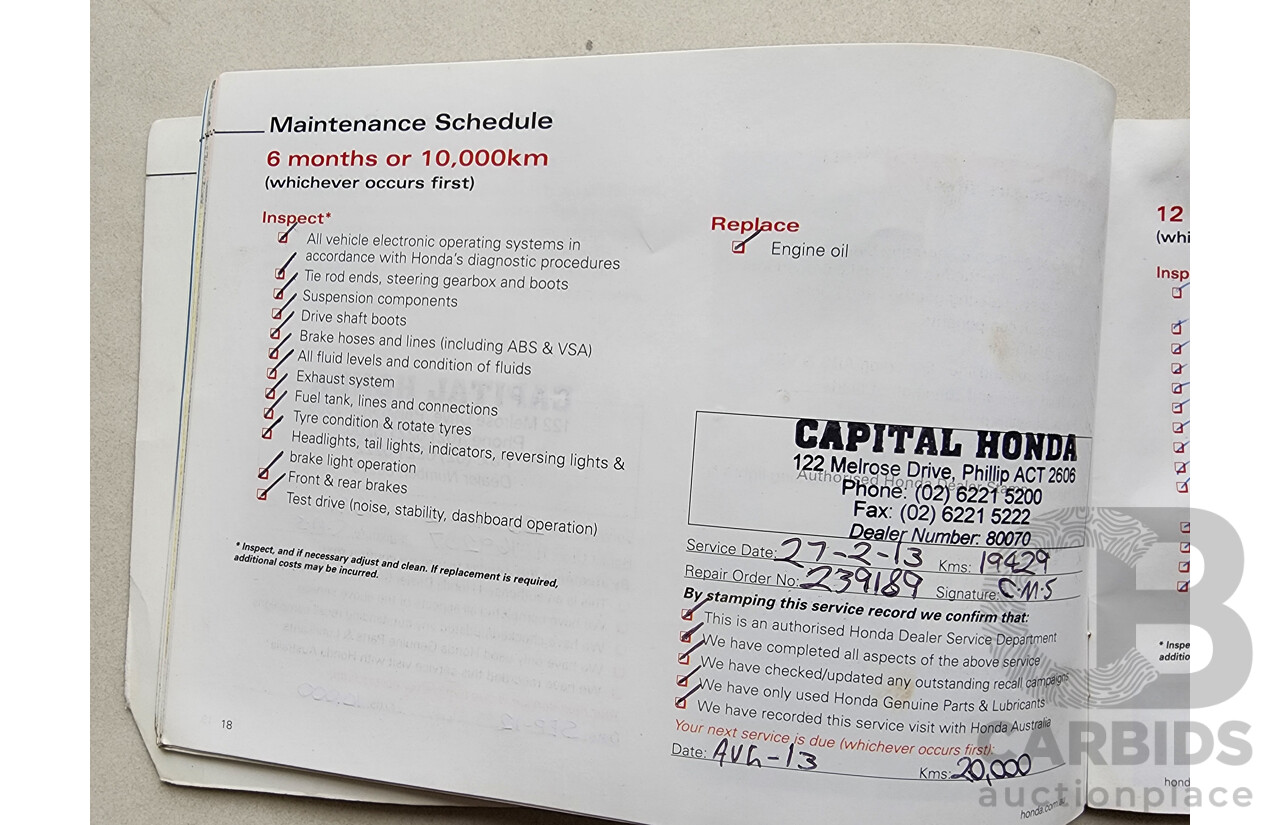 Maintenance Schedule
6 months or 10,000km
(whichever occurs first)
Inspect*
All vehicle electronic operating systems in
accordance with Honda's diagnostic procedures
Tie rod ends, steering gearbox and boots
Suspension components
Drive shaft boots
Brake hoses and lines (including ABS & VSA)
All fluid levels and condition of fluids
Exhaust system
Fuel tank, lines and connections
Tyre condition & rotate tyres
Headlights, tail lights, indicators, reversing lights &
brake light operation
Front & rear brakes
Test drive (noise, stability, dashboard operation)
* Inspect, and if necessary adjust and clean. If replacement is required,
additional costs may be incurred.
18
Replace
Engine oil
CAPITAL HONDA
122 Melrose Drive, Phillip ACT 2606
Authorised Honda Dealer Stamp
Phone: (02) 6221 5200
Fax: (02) 6221 5222
Dealer Number: 80070
Service Date: 27-2-13 Kms: 19429
Repair Order No: 239189 Signature: C.M.S
By stamping this service record we confirm that:
This is an authorised Honda Dealer Service Department
We have completed all aspects of the above service
We have checked/updated any outstanding recall campaigns
We have only used Honda Genuine Parts & Lubricants
We have recorded this service visit with Honda Australia
Your next service is due (whichever occurs first):
Date: AUG-13 Kms: 20,000
honda.com.au
12
(whi
Insp
* Inspe
additio
hond
CARBIDS
auctionplace